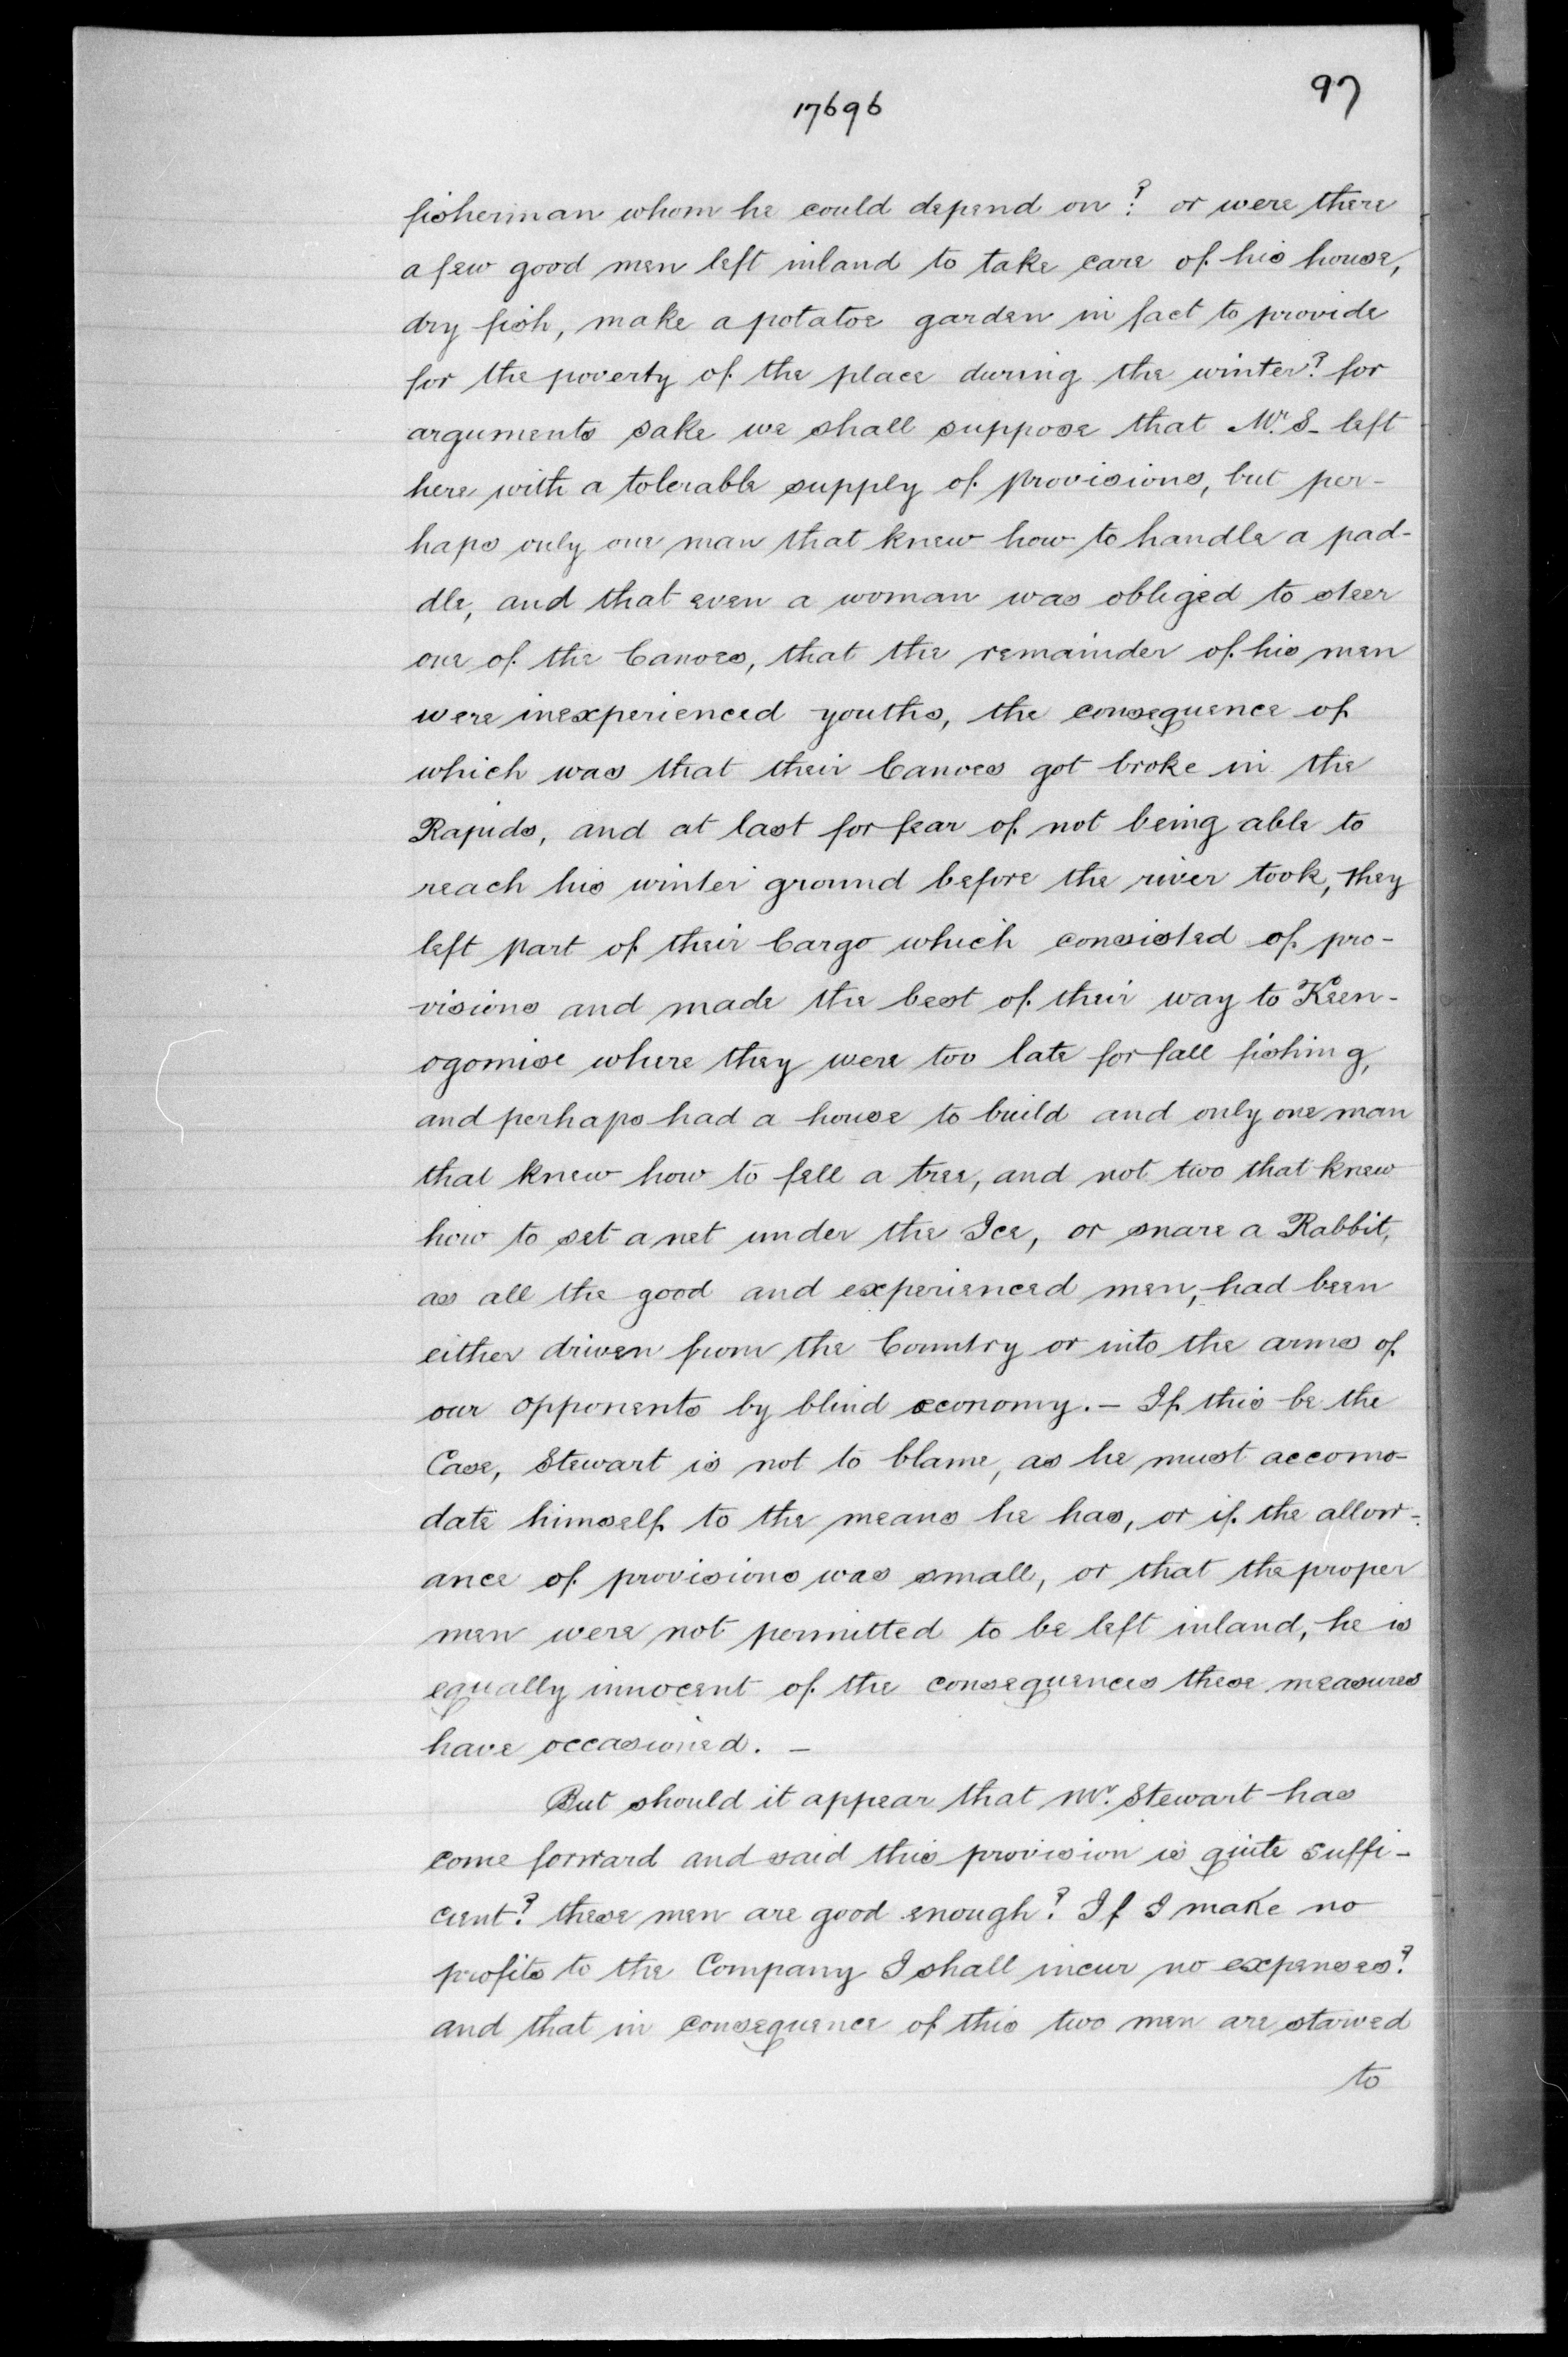 97
17696
fisherman whom he could depend on? or were there
a few good men left inland to take care of his house,
dry fish, make a potatoe garden in fact to provide
for the poverty of the place during the winter? for
arguments sake we shall suppose that Mr. S- left
here with a tolerable supply of provisions, but per-
haps only one man that knew how to handle a pad-
dle, and that even a woman was obliged to steer
one of the Canoes, that the remainder of his men
were inexperienced youths, the consequence of
which was that their Canoes got broke in the
Rapids, and at last for fear of not being able to
reach his winter ground before the river took, they
left part of their Cargo which consisted of pro-
visions and made the best of their way to Keen-
ogomise where they were too late for fall fishing,
and perhaps had a house to build and only one man
that knew how to fell a tree, and not two that knew
how to set a net under the Ice, or snare a Rabbit,
as all the good and experienced men, had been
either driven from the Country or into the arms of
our opponents by blind œconomy. - If this be the
Case, Stewart is not to blame, as he must accomo-
date himself to the means he has, or if the allow-
ance of provisions was small, or that the proper
men were not permitted to be left inland, he is
equally innocent of the consequences these measures
have occasioned. -
But should it appear that Mr. Stewart has
come forward and said this provision is quite suffi-
cient? these men are good enough? If I make no
profits to the Company I shall incur no expenses?
and that in consequence of this two men are starved
to